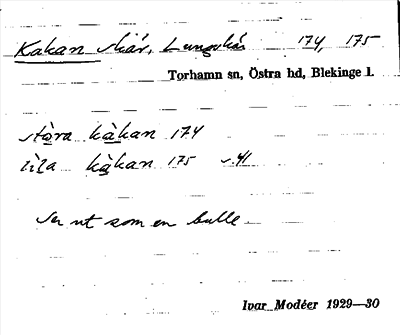 Kakan skär, Lungskär 174, 175
Torhamn sn, Östra hd, Blekinge l.
stòra kàkan 174
lìla kàkan 175
Ser ut som en bulle
Ivar Modéer 1929—30